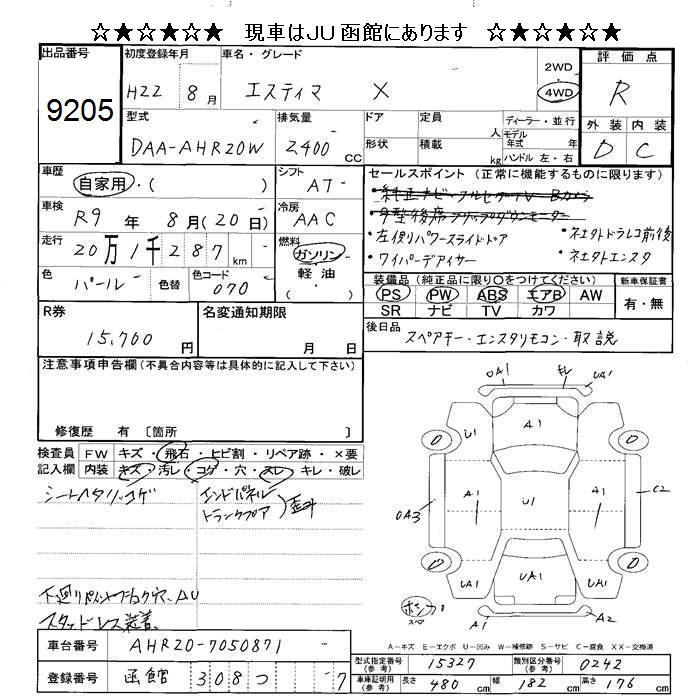 ☆★☆★☆★ 現車はJU函館にあります ☆★☆★☆★
出品番号 初度登録年月 車名・グレード 2WD 評価点
9205 H22 8月 エスティマ X 4WD R
型式 排気量 ドア 定員 人 ディーラー・並行 外装 内装
DAA-AHR20W 2400CC 形状 積載 kg モデル年式 年 D C
ハンドル 左・右
車歴 シフト セールスポイント (正常に機能するものに限ります)
自家用・( ) AT
車検 冷房
R9年 8月(20日) AAC ・左側パワースライドドア ・ネエタトドラレコ前後
走行 燃料 ・ワイパーデアイサー ・ネエタトエンスタ
20万1千287km ガソリン
色 色替 色コード 軽油 装備品 (純正品に限り〇をつけてください) 新車保証書
パール 070 ( ) PS PW ABS エアB AW 有・無
SR ナビ TV カワ
R券 名変通知期限 後日品
15,700円 月 日 スペアキー・エンスタリモコン・取説
注意事項申告欄 (不具合内容等は具体的に記入して下さい)
修復歴 有 〔箇所
検査員 FW キズ・飛石・ヒビ割・リペア跡・×要
記入欄 内装 キズ・汚レ・コゲ・穴・スレ・キレ・破レ
シートヘタリ、コゲ
エンドパネル
トランクフロア
歪み
スタッドレス装着
UA1
A1
UA1
U1
A1
0
0
0A3
A1
U1
A1
C2
0
0
UA1
UA1
UA1
スペア
A1
A2
A-キズ E-エクボ U-凹み W-補修跡 S-サビ C-腐食 XX-交換済
車台番号 AHR20-7050871
型式指定番号(参考) 15327 類別区分番号(参考) 0242
登録番号 函館 308 つ 7
車庫証明用(参考) 長さ 480cm 幅 182cm 高さ 176cm